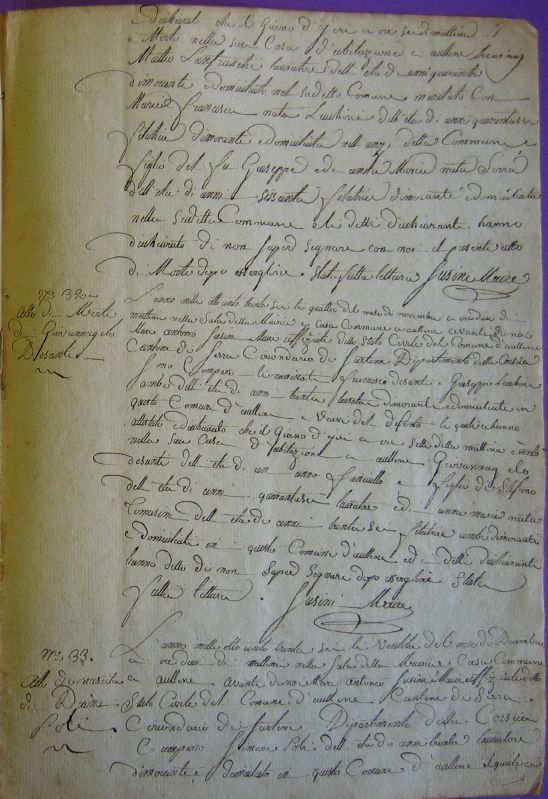 e dichiarato che il Giorno d'jeri a ore sei di mattina
è Morto nella sua Casa d'abitazione a aullene
Matteo Lanfranchi lavoratore dell'età di anni quaranta
dimorante e domiciliato nel sudetto Comune maritato Con
Maria Francesca nata dell'età di anni quarantasei
filatrice dimorante e domiciliata nell detta Commune e
figlio del fu Giuseppe ed anna Maria nata Serra
dell'età di anni sessanta filatrice dimorante e domiciliata
nella sudetta Commune e li detti dichiaranti hanno
dichiarato di non saper segnare con noi il presente atto
di Morte dopo essergline stata fatta lettura Susini Maire
No 32
atto di Morte
di Giovannangelo
Desanti
L'anno mille otto cento trenta sei li quattro del mese di novembre a ore due di
mattina nella Sala della Mairia, e Casa Commune a aullene avanti di noi
Marc antonio Susini Maire uffiziale dello Stato Civile del Comune d'aullene
Cantone di Serra Circondario di Sartene Dipartimento della Corsica
Sono Comparsi li nominati Francesco desanti e Giuseppe
ambi dell'età di anni trenta lavoratori dimoranti e domiciliati in
questo Comune d'aullene e vicini del defonto li quali ci hanno
attestato e dichiarato che il Giorno d'jeri a ore sette della mattina è morto
nella sua Casa d'abitazione a aullene Giovannangelo
desanti dell'età di un anno fanciullo e figlio di Stefano
dell'età di anni quarantasei lavoratore ed anna maria nata
Tomasini dell'età di anni trenta sei filatrice ambi dimoranti
e domiciliati in questo Comune d'aullene ed i detti dichiaranti
hanno detto di non saper segnare dopo essergline stata
fatta lettura. Susini Maire
No 33.
atto di nascita
di
Poli
L'anno mille otto cento trenta sei li del mese di Decembre
a ore dieci di mattina nella Sala della Mairia e Casa Commune
a aullene avanti di noi Marc antonio Susini Maire uffiziale dello
Stato Civile del Comune d'aullene Cantone di Serra
Circondario di Sartene Dipartimento della Corsica
è comparso Simone Poli dell'età di anni trenta lavoratore
dimorante e domiciliato in questo Comune d'aullene il quale ci